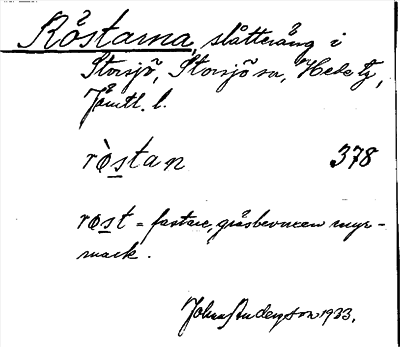 Röstarna, slåtteräng i
Storsjö, Storsjö sn, Hede tg,
Jämtl. l.
ròstan 378
rost = fastare, gräsbevuxen myr-
mark.
John Anderson 1933.